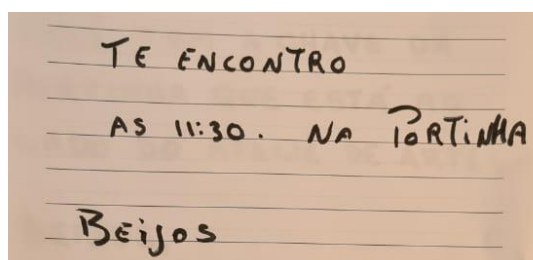 TE ENCONTRO
AS 11:30. NA PORTINHA
BEIJOS